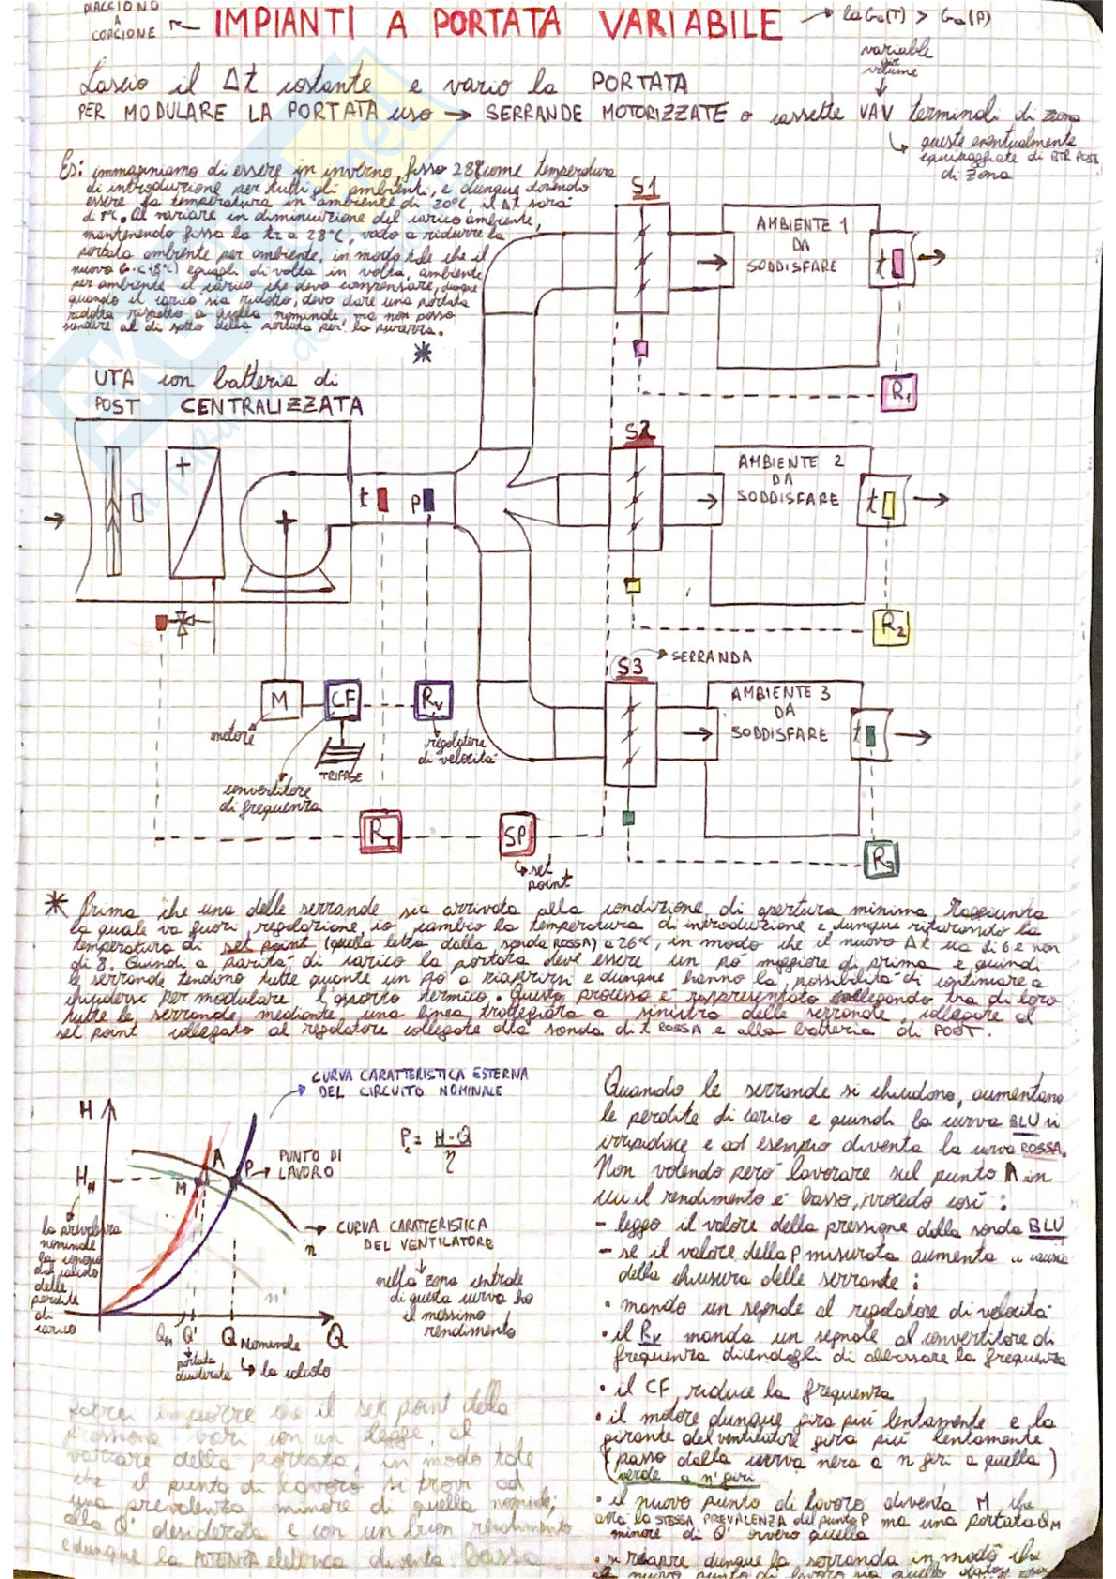 PIACCIONO
A
CORGIONE
IMPIANTI A PORTATA VARIABILE
→ la Ga(T) > Ga(P)
variable
air
volume
Lascio il Δt costante e vario la PORTATA
PER MODULARE LA PORTATA uso → SERRANDE MOTORIZZATE o cassette VAV terminali di zona
queste eventualmente
equipaggiate di BTR POST
di zona
Es: immaginiamo di essere in inverno, fisso 28°C come temperatura
di introduzione per tutti gli ambienti, e dunque dovendo
essere la temperatura in ambiente di 20°C, il Δt sarà
di 8°C. Al variare in diminuzione del carico ambiente,
mantenendo fissa la tz a 28°C, vado a ridurre la
portata ambiente per ambiente, in modo tale che il
nuovo G·c·(8°C) eguagli di volta in volta, ambiente
per ambiente il carico che devo compensare, dunque
quando il carico sia ridotto, devo dare una portata
ridotta rispetto a quella nominale, ma non posso
scendere al di sotto della portata per la purezza.
*
S1
AMBIENTE 1
DA
SODDISFARE
t
R1
UTA con batteria di
POST CENTRALIZZATA
+
t
p
S2
AMBIENTE 2
DA
SODDISFARE
t
R2
S3 → SERRANDA
AMBIENTE 3
DA
SODDISFARE
t
R3
M
CF
Rv
motore
TRIFASE
regolatore
di velocità
convertitore
di frequenza
RT
SP
set
point
* Prima che una delle serrande sia arrivata alla condizione di apertura minima, raggiunta
la quale va fuori regolazione, io cambio la temperatura di introduzione e dunque riducendo la
temperatura di set point (quella letta dalla sonda ROSSA) a 26°C, in modo che il nuovo Δt sia di 6 e non
di 8. Quindi a parità di carico la portata deve essere un po' maggiore di prima e quindi
le serrande tendono tutte quante un po' a riaprirsi e dunque hanno la possibilità di continuare a
chiudersi per modulare l'apporto termico. Questo processo è rappresentato collegando tra di loro
tutte le serrande, mediante una linea tratteggiata a sinistra delle serrande, collegate al
set point collegato al regolatore collegato alla sonda di t ROSSA e alla batteria di POST.
CURVA CARATTERISTICA ESTERNA
DEL CIRCUITO NOMINALE
H
Pe = H·Q
η
A
P
PUNTO DI
LAVORO
HN
M
la prevalenza
nominale
la conosco
dal calcolo
delle
perdite
di
carico
CURVA CARATTERISTICA
DEL VENTILATORE
n
n'
nella zona centrale
di questa curva ho
il massimo
rendimento
QM Q' Q Nominale Q
portata
desiderata
la calcolo
Quando le serrande si chiudono, aumentano
le perdite di carico e quindi la curva BLU si
irripidisce e ad esempio diventa la curva ROSSA.
Non volendo però lavorare sul punto A in
cui il rendimento è basso, procedo così:
- leggo il valore della pressione dalla sonda BLU
- se il valore della P misurata aumenta a causa
della chiusura delle serrande:
• mando un segnale al regolatore di velocità
• il Rv manda un segnale al convertitore di
frequenza dicendogli di abbassare la frequenza
• il CF, riduce la frequenza
• il motore dunque gira più lentamente e la
girante del ventilatore gira più lentamente
(passo dalla curva nera a n giri a quella)
verde a n' giri
• il nuovo punto di lavoro diventa M, che
avrà la STESSA PREVALENZA del punto P ma una portata QM
minore di Q' ovvero quella
• si riapre dunque la serranda in modo che
il nuovo punto di lavoro sia quello
Potrei imporre che il set point della
pressione vari con un legge, al
variare della portata, in modo tale
che il punto di lavoro si trovi ad
una prevalenza minore di quella nominale,
alla Q' desiderata e con un buon rendimento
e dunque la POTENZA elettrica diventa bassa